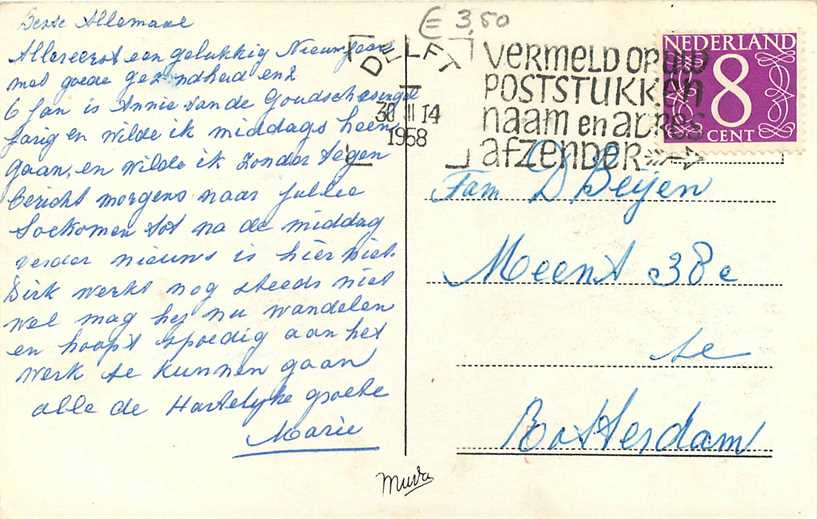 Beste Allemaal
Allereerst een gelukkig Nieuwjaar
met goede gezondheid enz
6 Jan is Annie van de Goudschesingel
jarig en wilde ik middags heen
gaan, en wilde ik zonder tegen
bericht morgens naar jullie
toekomen tot na de middag
verder nieuws is hier niet.
Dirk werkt nog steeds niet
wel mag hij nu wandelen
en hoopt spoedig aan het
werk te kunnen gaan
alle de Hartelijke groete
Marie
€ 3,50
DELFT
1958
VERMELD OP UW
POSTSTUKKEN
naam en adres
afzender
NEDERLAND
8
CENT
Fam D Beijen
Meent 38c
te
Rotterdam
Muva